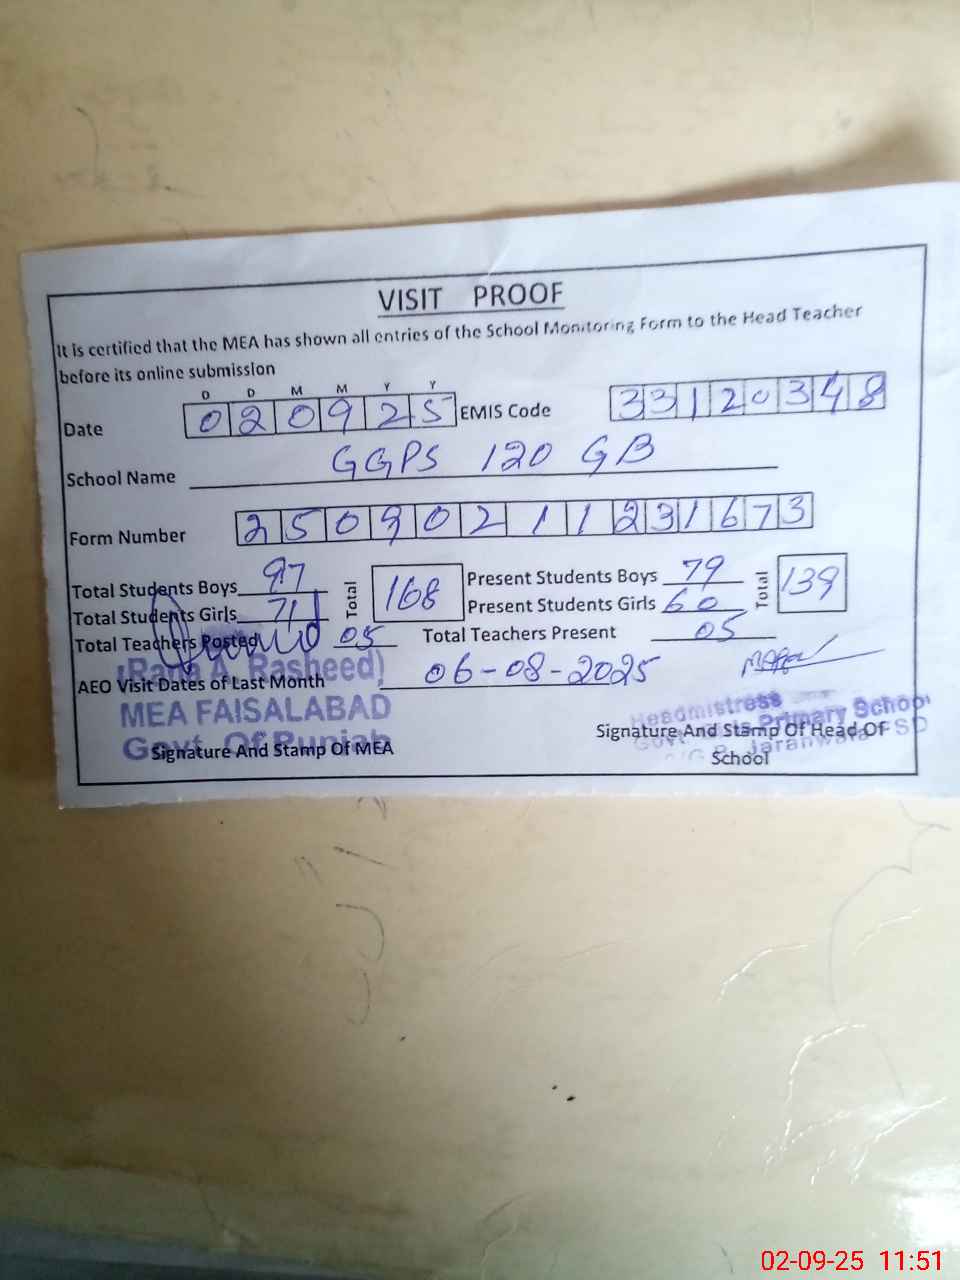 VISIT PROOF
It is certified that the MEA has shown all entries of the School Monitoring Form to the Head Teacher
before its online submission
D D M M Y Y
Date 020925 EMIS Code 33120348
School Name GGPS 120 GB
Form Number 25090211231673
Total Students Boys 97 Total 168 Present Students Boys 79 Total 139
Total Students Girls 71 Present Students Girls 60
Total Teachers Posted 05 Total Teachers Present 05
(Rana A. Rasheed)
AEO Visit Dates of Last Month 06-08-2025
MEA FAISALABAD
Govt. Of Punjab
Signature And Stamp Of MEA
Headmistress
Govt. Girls Primary School
Jaranwala FSD
Signature And Stamp Of Head Of
School
02-09-25 11:51